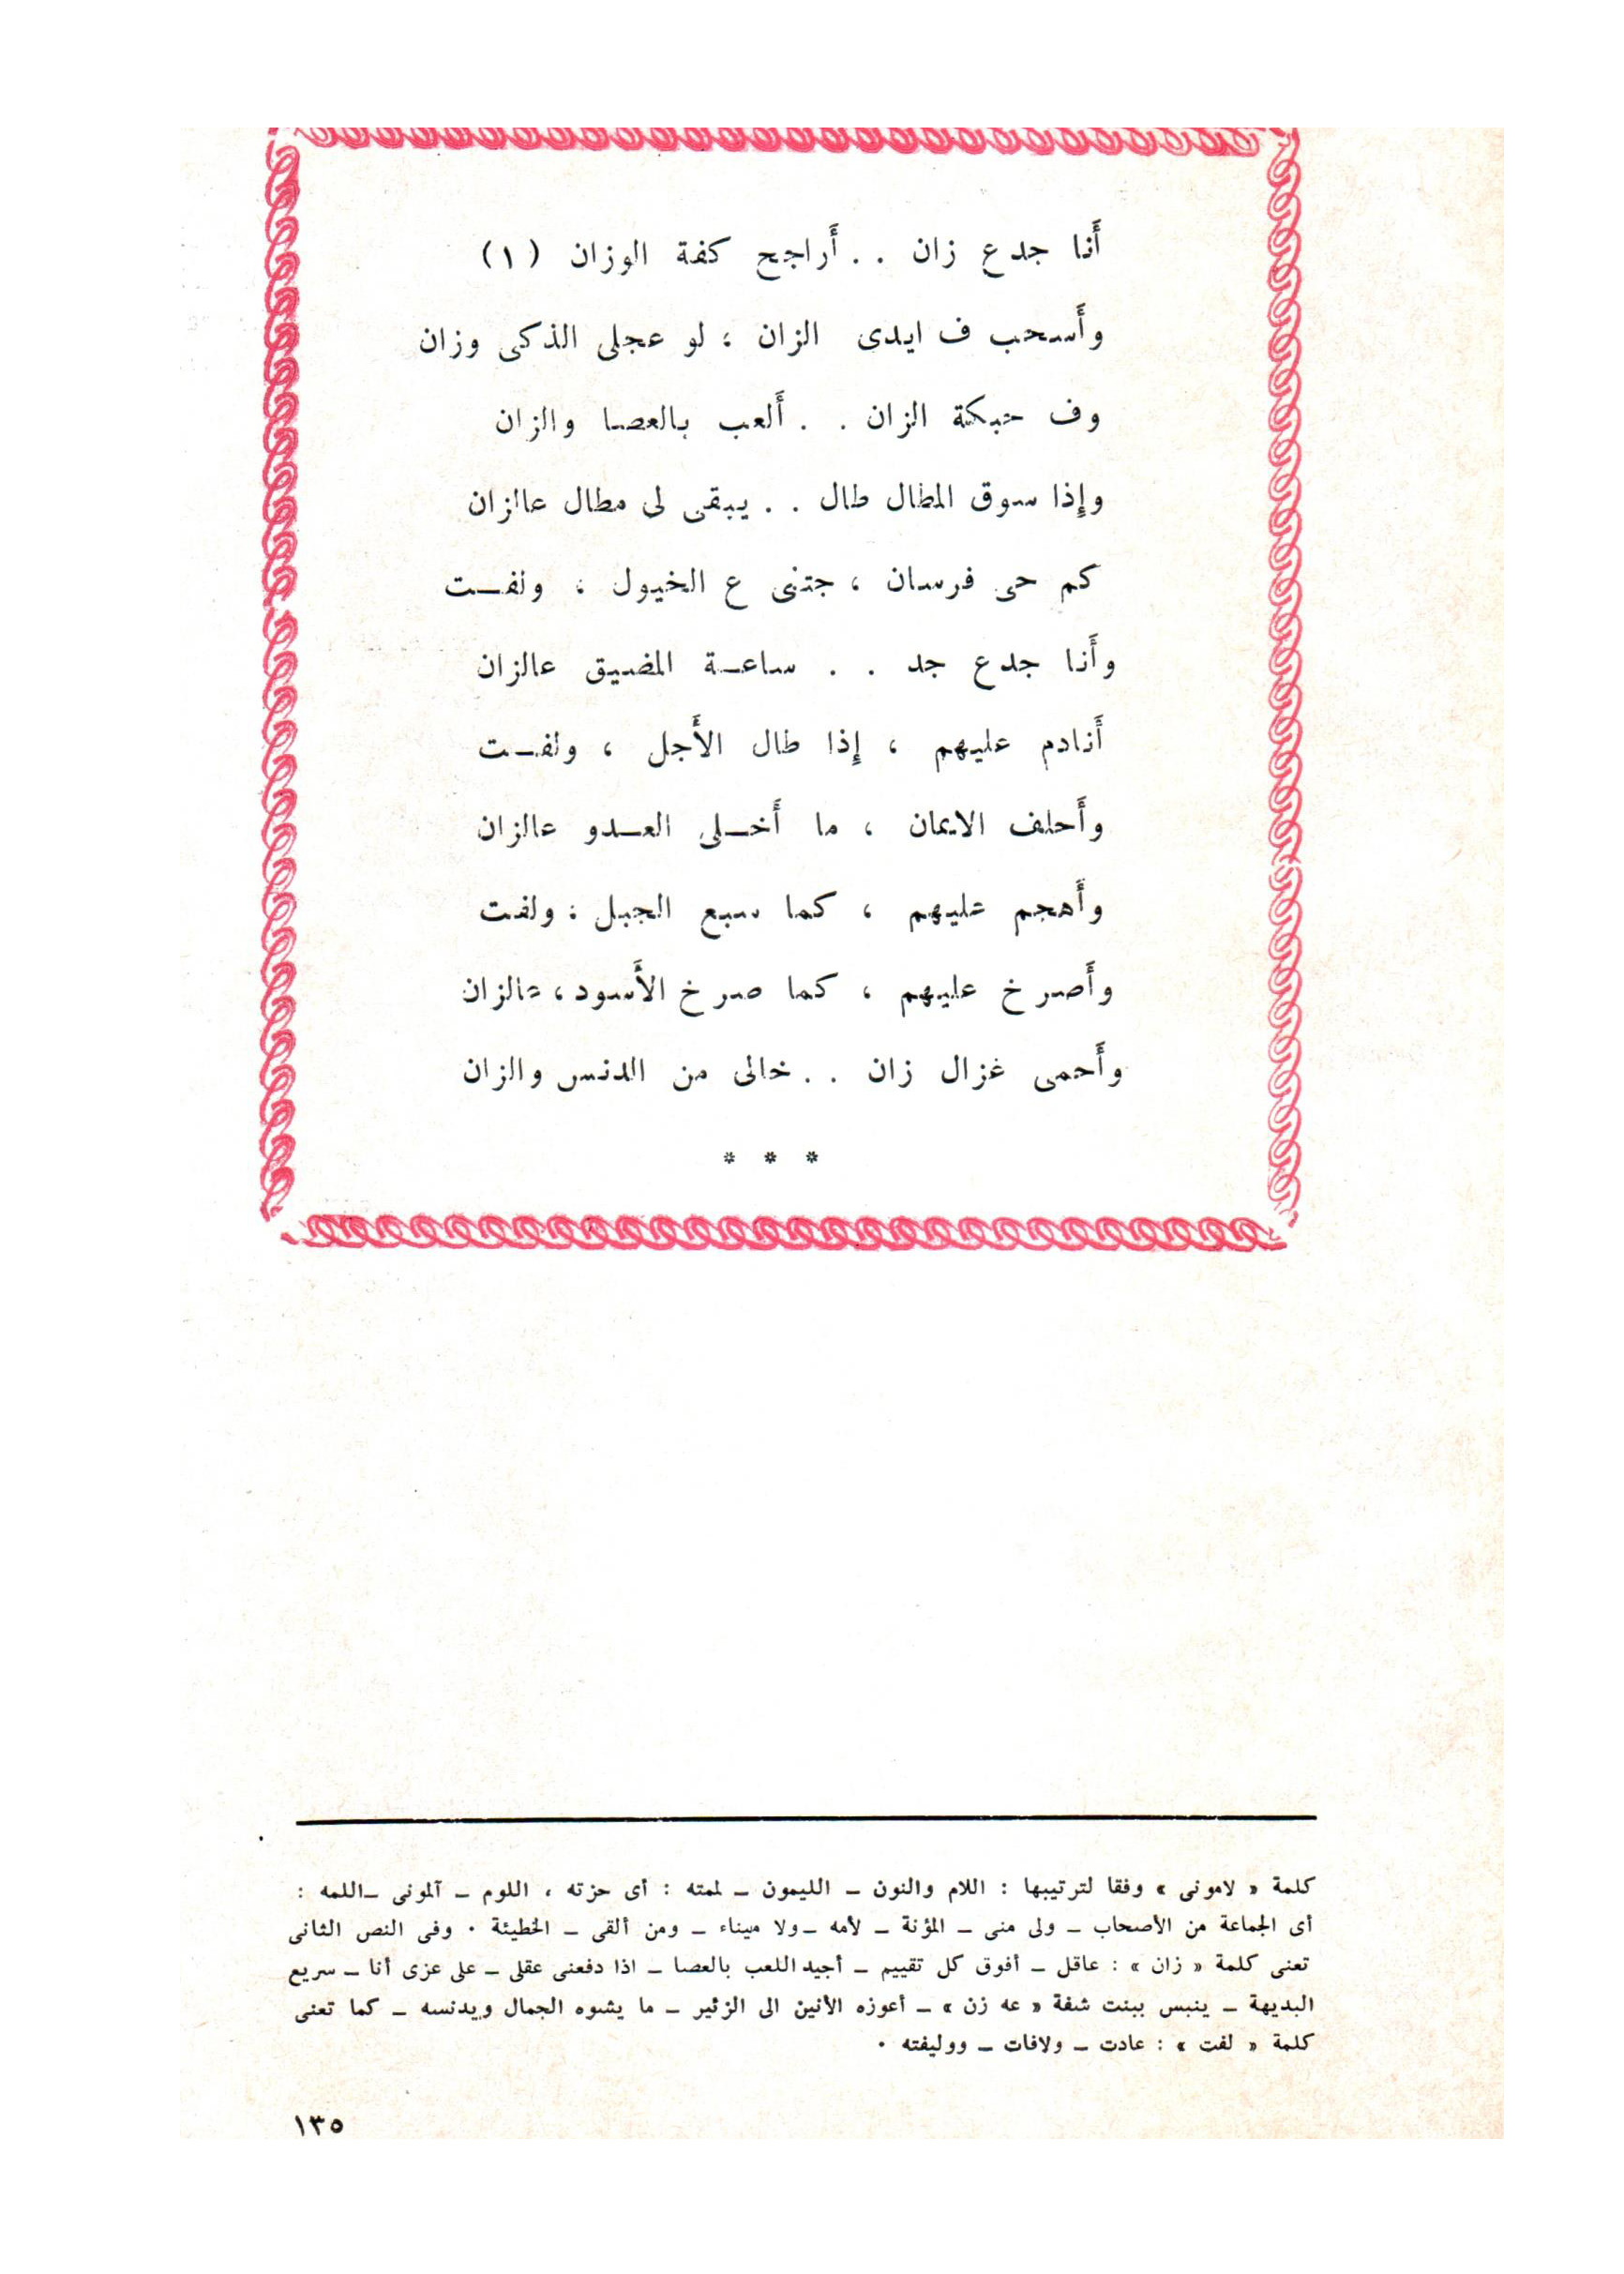 أَنا جدع زان . . أَراجح كفة الوزان (١)
وأَسحب ف ايدى الزان ، لو عجلى الذكى وزان
وف حبكة الزان . . أَلعب بالعصا والزان
وإِذا سوق المطال طال . . يبقى لى مطال عالزان
كم حى فرسان ، جتنى ع الخيول ، ولفـت
وأَنا جدع جد . . ساعـة المضيق عالزان
أَنادم عليهم ، إِذا طال الأَجل ، ولفـت
وأَحلف الايمان ، ما أَخـلى العـدو عالزان
وأَهجم عليهم ، كما سبع الجبل ، ولفت
وأَصرخ عليهم ، كما صرخ الأَسود ، عالزان
وأَحمى غزال زان . . خالى من الدنس والزان
* * *
كلمة « لامونى » وفقا لترتيبها : اللام والنون ـ الليمون ـ لمته : أى حزته ، اللوم ـ آلمونى ـ اللمه :
أى الجماعة من الأصحاب ـ ولى منى ـ المؤنة ـ لأمه ـ ولا ميناء ـ ومن ألقى ـ الخطيئة . وفى النص الثانى
تعنى كلمة « زان » : عاقل ـ أفوق كل تقييم ـ أجيد اللعب بالعصا ـ اذا دفعنى عقلى ـ على عزى أنا ـ سريع
البديهة ـ ينبس ببنت شفة « عه زن » ـ أعوزه الأنين الى الزئير ـ ما يشوه الجمال ويدنسه ـ كما تعنى
كلمة « لفت » : عادت ـ ولافات ـ ووليفته .
١٣٥